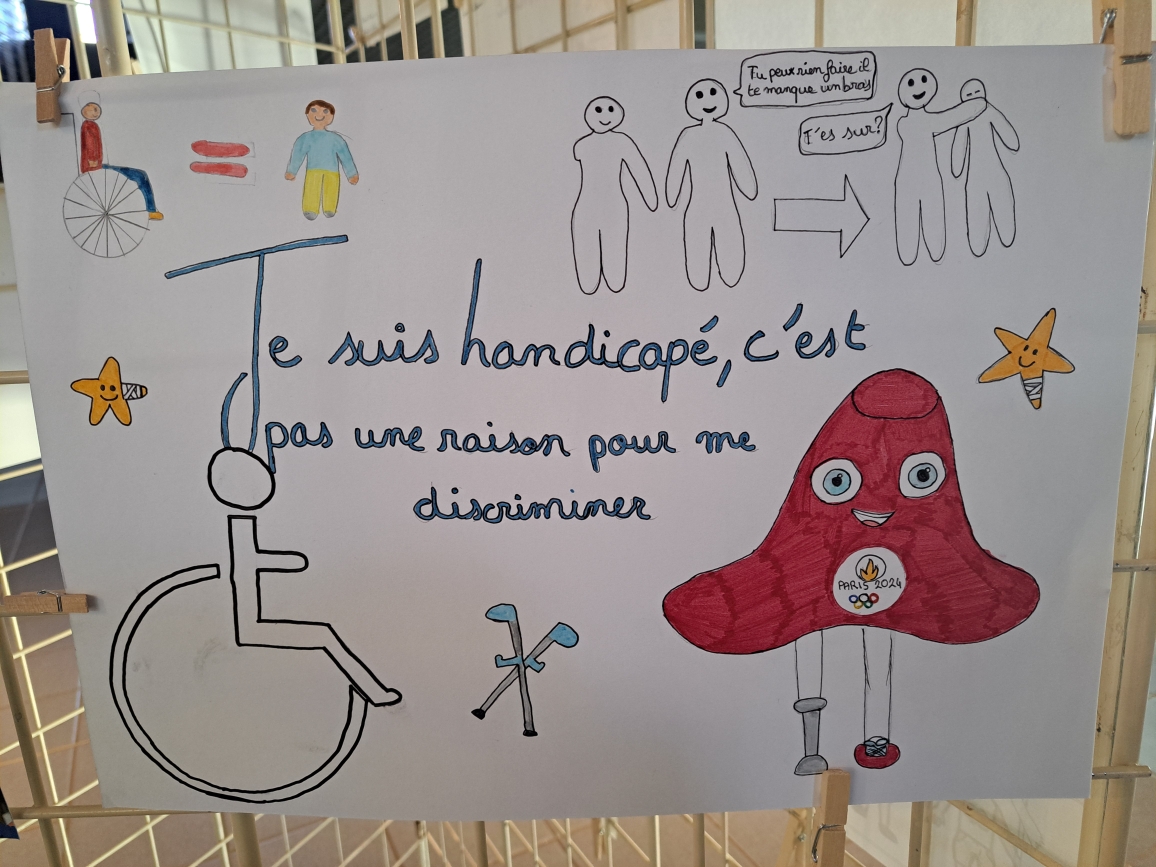 Tu peux rien faire il
te manque un bras
T'es sur?
Je suis handicapé, c'est
pas une raison pour me
discriminer
PARIS 2024